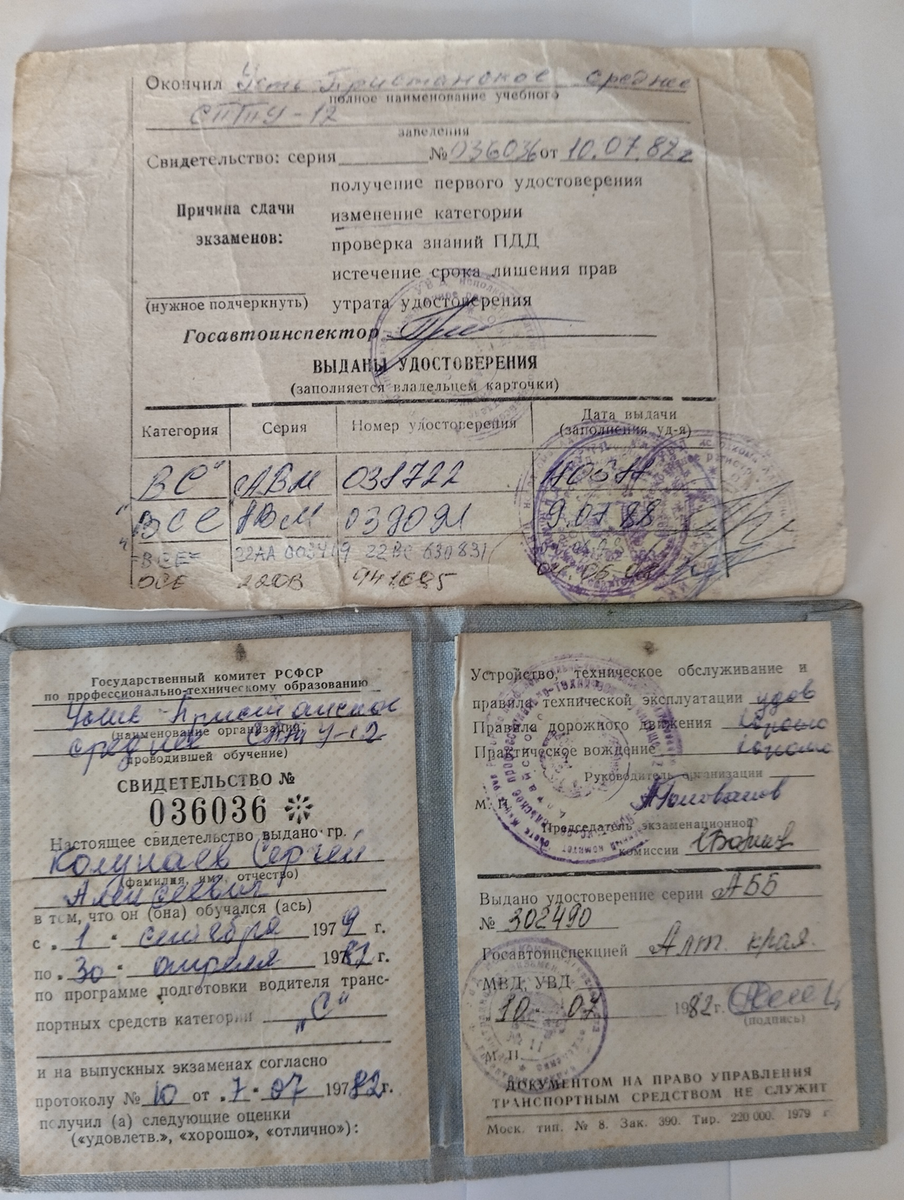 Окончил Усть-Пристанское среднее
полное наименование учебного
СПТУ-12
заведения
Свидетельство: серия № 036036 от 10.07.82 г
Причина сдачи экзаменов:
(нужное подчеркнуть)
получение первого удостоверения
изменение категории
проверка знаний ПДД
истечение срока лишения прав
утрата удостоверения
Госавтоинспектор
ВЫДАНЫ УДОСТОВЕРЕНИЯ
(заполняется владельцем карточки)
Категория Серия Номер удостоверения Дата выдачи (заполнения уд-я)
"ВС" АВМ
"ВСЕ" АВМ 88
"ВСЕ"
ВСЕ 22ОВ
Государственный комитет РСФСР
по профессионально-техническому образованию
Усть-Пристанское
(наименование организации,
среднее СПТУ-12
проводившей обучение)
СВИДЕТЕЛЬСТВО №
036036
Настоящее свидетельство выдано гр.
Колупаев Сергей
(фамилия, имя, отчество)
Алексеевич
в том, что он (она) обучался (ась)
с „ 1 " сентября 1979 г.
по „ 30 " апреля 1982 г.
по программе подготовки водителя транс-
портных средств категории „С"
и на выпускных экзаменах согласно
протоколу № 10 от „ 7 " 07 1982 г.
получил (а) следующие оценки
(«удовлетв.», «хорошо», «отлично»):
Устройство, техническое обслуживание и
правила технической эксплуатации удов
Правила дорожного движения хорошо
Практическое вождение хорошо
Руководитель организации
М. П.
Председатель экзаменационной
комиссии
Выдано удостоверение серии АББ
№ 302490
Госавтоинспекцией Алт. края.
МВД, УВД
10 - 07 1982 г.
(подпись)
М. П.
ДОКУМЕНТОМ НА ПРАВО УПРАВЛЕНИЯ
ТРАНСПОРТНЫМ СРЕДСТВОМ НЕ СЛУЖИТ
Моск. тип. № 8. Зак. 390. Тир. 220 000. 1979 г.